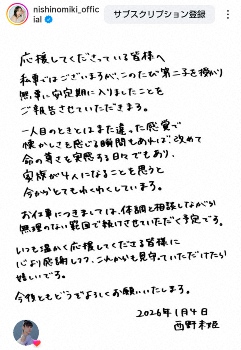 nishinomiki_offic
ial
サブスクリプション登録
応援してくださっている皆様へ
私事ではございますが、このたび第二子を授かり
無事に安定期に入りましたことを
ご報告させていただきます。
一人目のときとはまた違った感覚で
懐かしさを感じる瞬間もあれば、改めて
命の尊さを実感する日々でもあり、
家族が4人になることを思うと
今からとてもわくわくしています。
お仕事につきましては、体調と相談しながら
無理のない範囲で続けさせていただく予定です。
いつも温かく応援してくださる皆様に
心より感謝しつつ、これからも見守っていただけたら
嬉しいです。
今後ともどうぞよろしくお願いいたします。
2026年1月4日
西野未姫